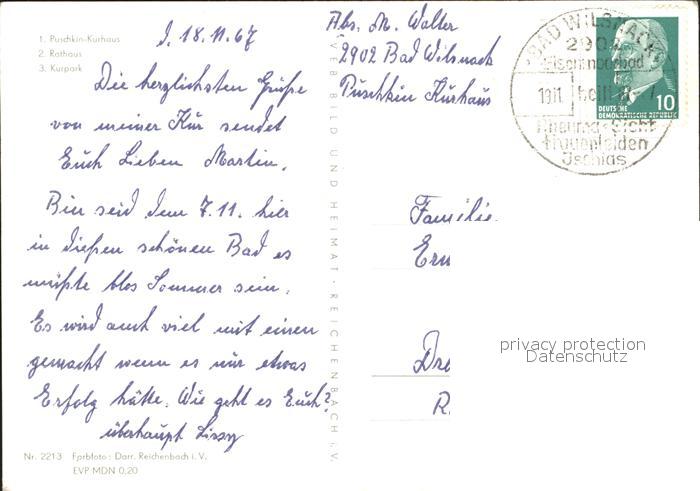 1. Puschkin-Kurhaus
2. Rathaus
3. Kurpark
d. 18.11.67
Die herzlichsten Grüße
von meiner Kur sendet
Euch Lieben Martin.
Bin seid dem 7.11. hier
in dießen schönen Bad es
müßte blos Sommer sein.
Es wird auch viel mit einen
gemacht wenn es nur etwas
Erfolg hätte. Wie geht es Euch?
überhaupt Lissy
Nr. 2213 Farbfoto: Darr. Reichenbach i. V.
EVP MDN 0,20
VEB BILD UND HEIMAT · REICHENBACH i. V.
Abs. M. Walter
2902 Bad Wilsnack
Puschkin Kurhaus
BAD WILSNACK
2902
Eisenmoorbad
heilt
Rheuma-Gicht
Frauenleiden
Ischias
10
DEUTSCHE
DEMOKRATISCHE REPUBLIK
Familie
Ern
Dre
R.
privacy protection
Datenschutz